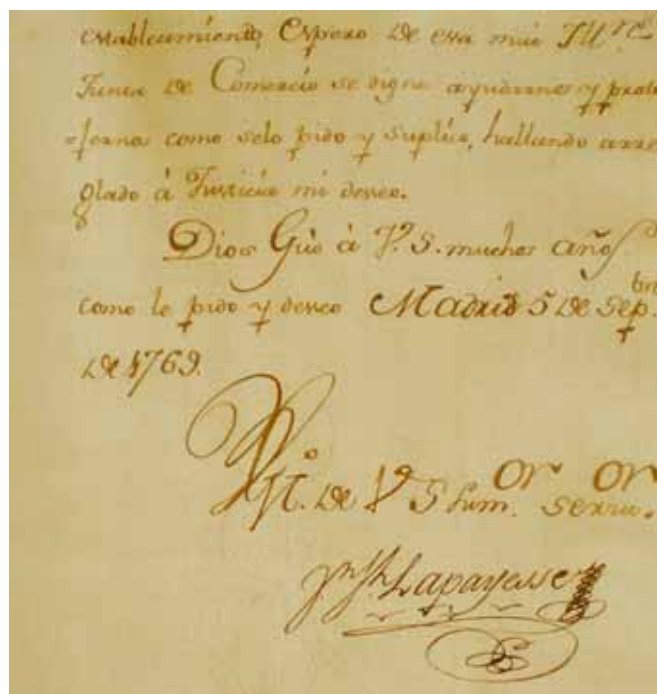 establecimiento, Espero de esa mui Ill.re
Junta de Comercio se digne ayudarnos y prote
-jernos como selo pido y suplico, hallando arre
glado à Justicia mi deseo.
Dios Gũe à V.S. muchos años
como le pido y deseo Madrid 5 de Sep.bre
de 1769.
de V S hum. servi.or
Lapayesse